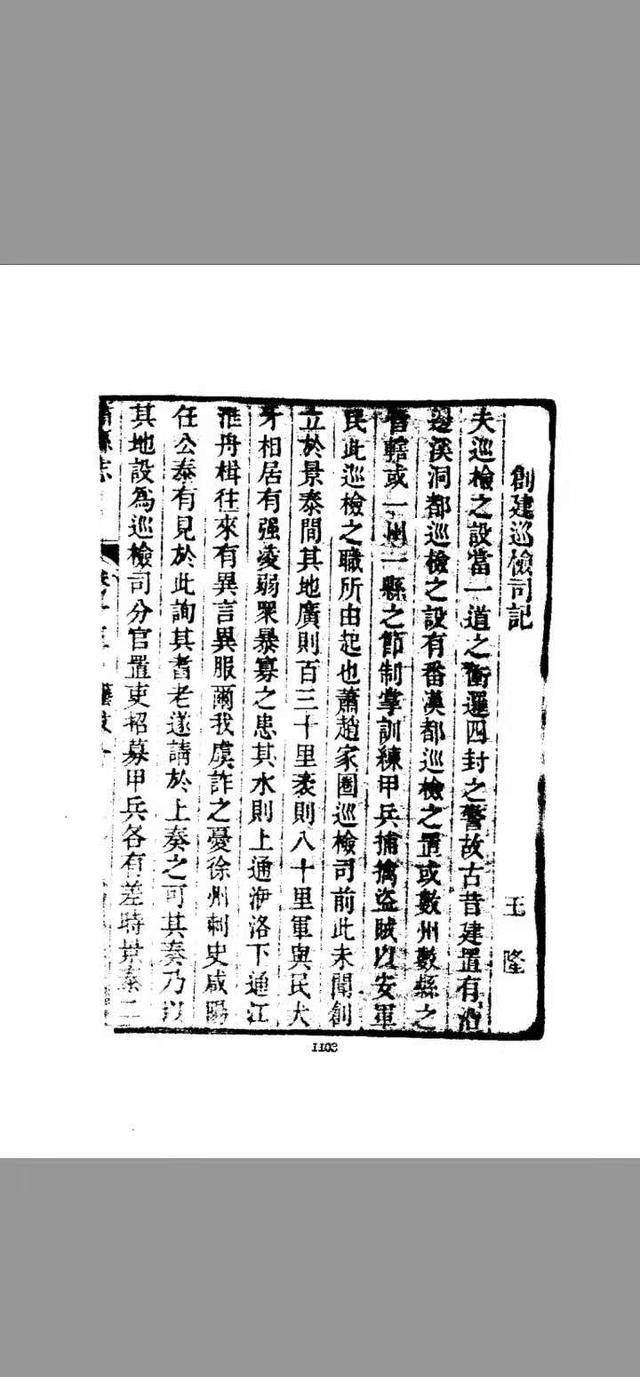 創建巡檢司記
王隆
夫巡檢之設當一道之衝邏四封之警故古昔建置有沿
邊溪洞都巡檢之設有番漢都巡檢之置或數州數縣之
管轄或一州一縣之節制掌訓練甲兵捕擒盜賊以安軍
民此巡檢之職所由起也蕭趙家圈巡檢司前此未聞創
立於景泰間其地廣則百三十里袤則八十里軍與民犬
牙相居有强凌弱眾暴寡之患其水則上通伊洛下通江
淮舟楫往來有異言異服爾我虞詐之憂徐州刺史咸陽
任公泰有見於此詢其耆老遂請於上奏之可其奏乃以
其地設為巡檢司分官置吏招募甲兵各有差時景泰二
蕭縣志
1103